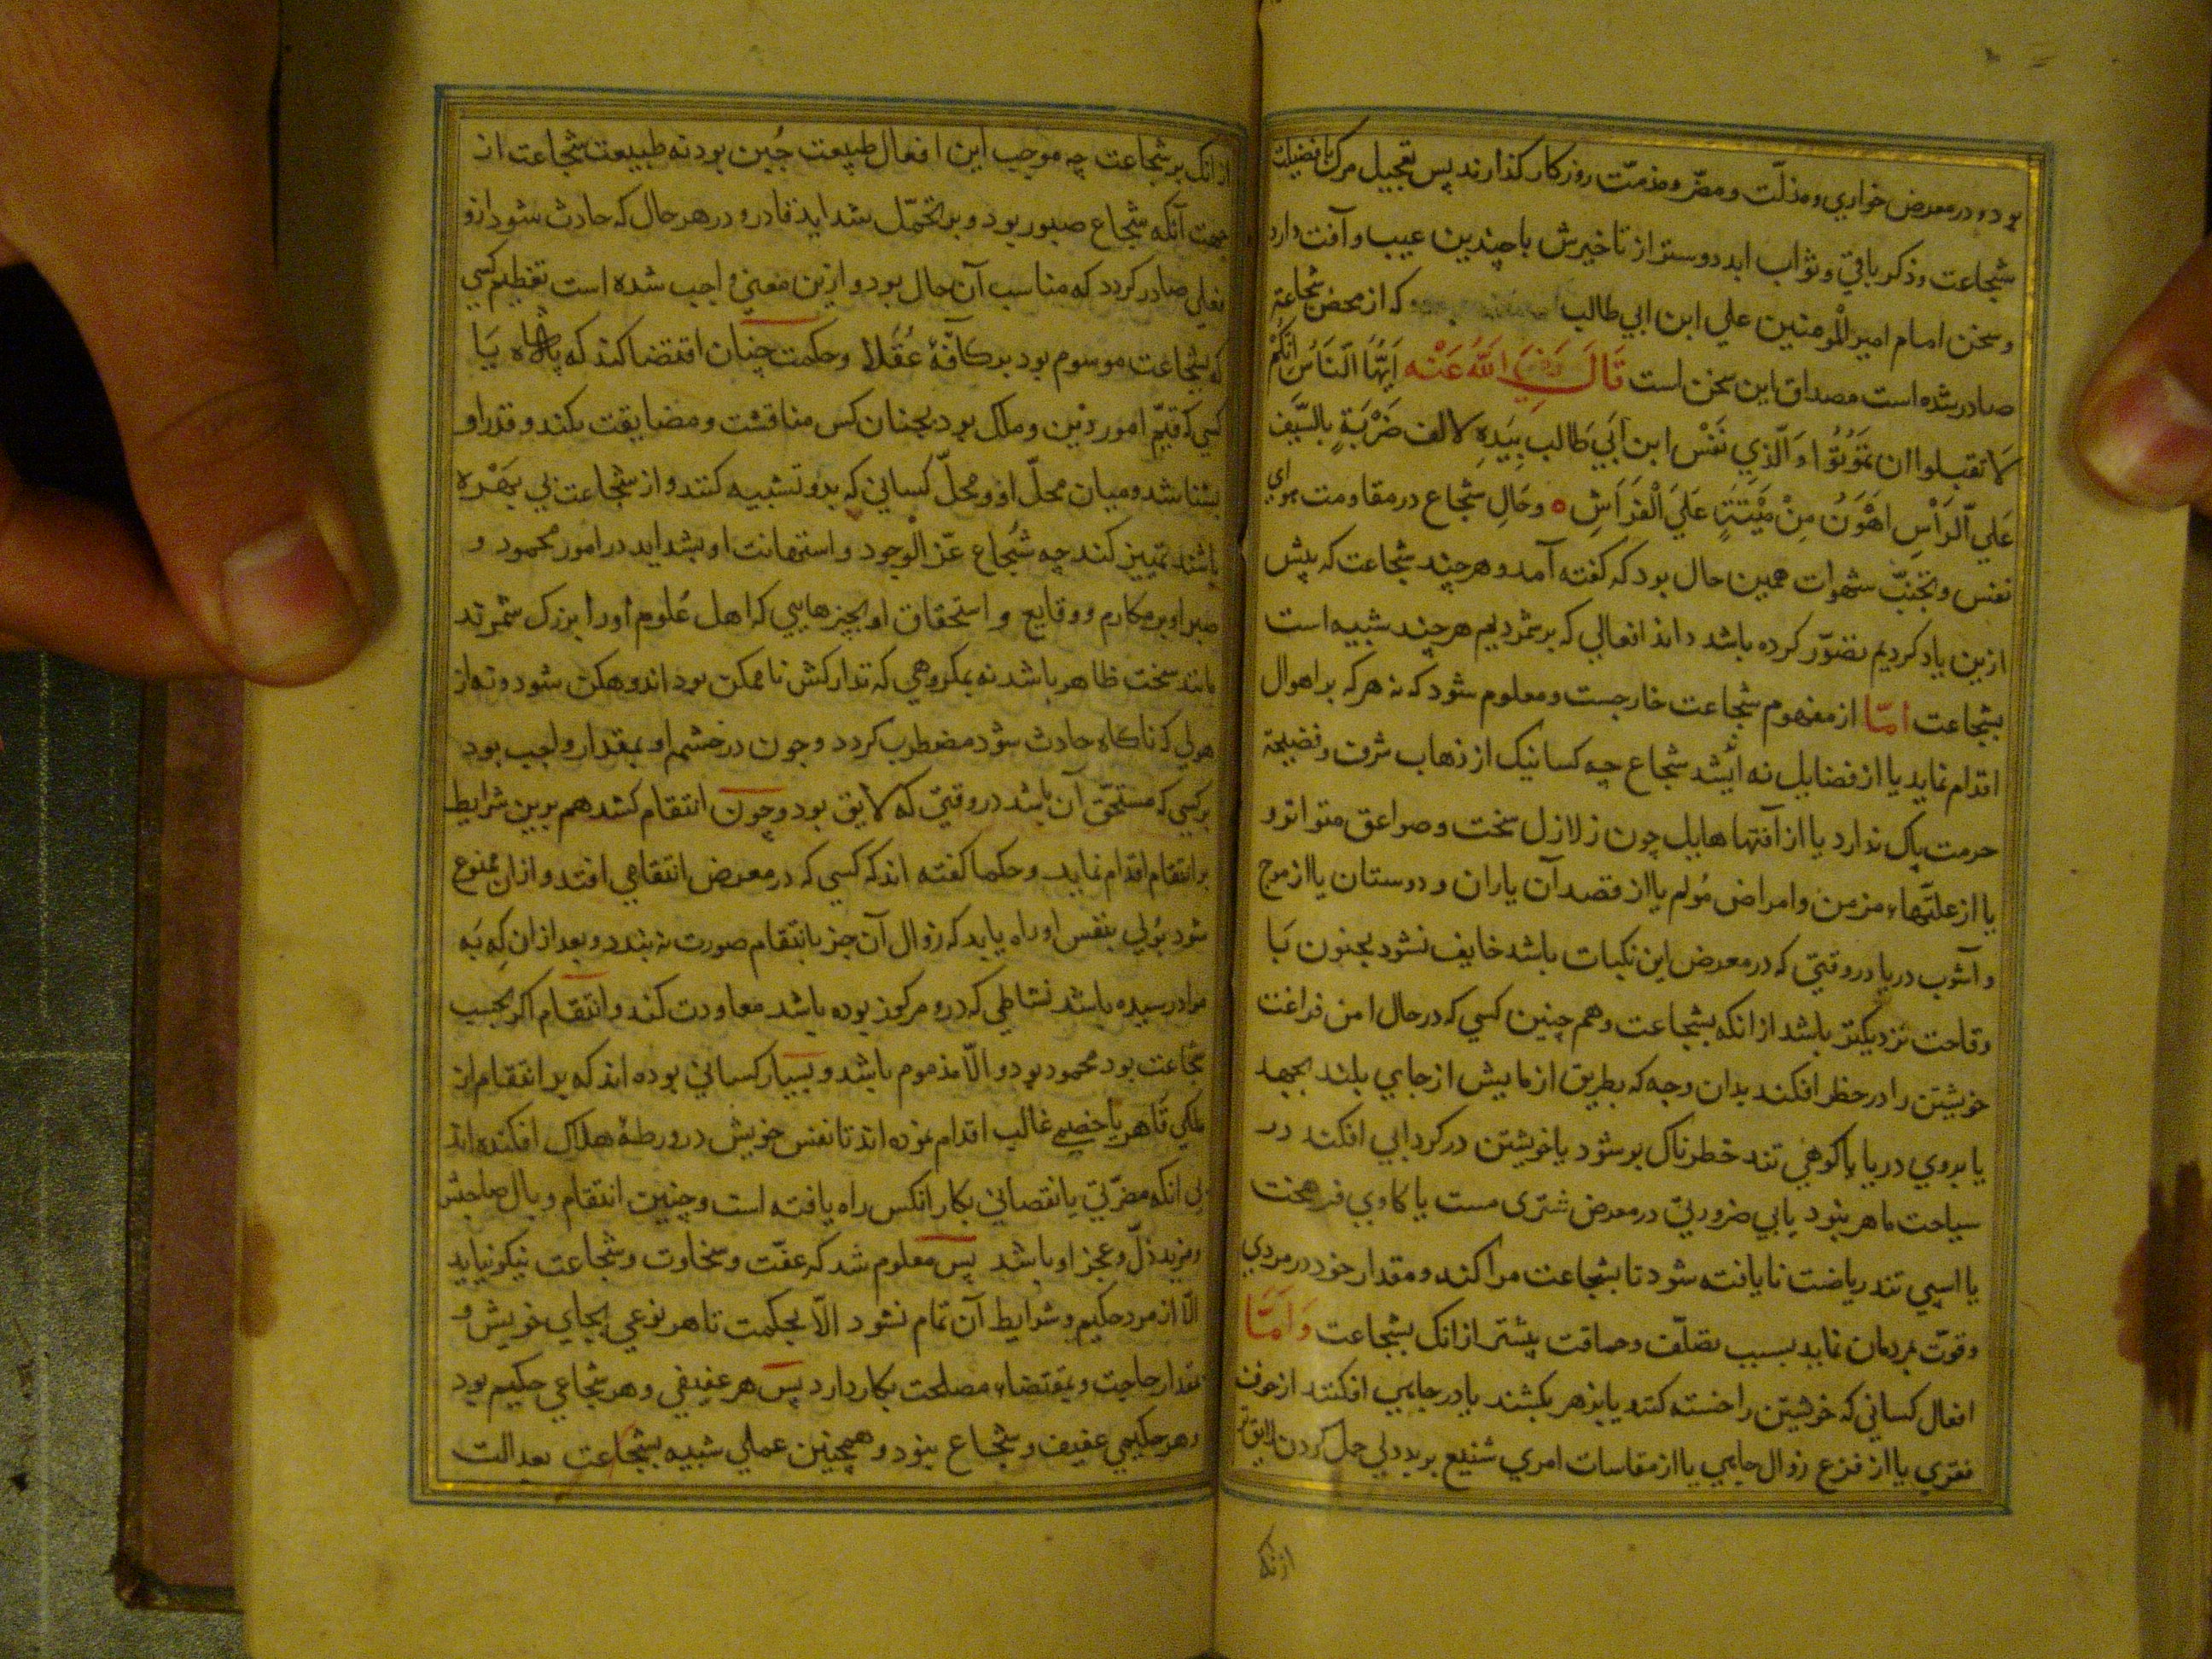 بود و در معرض خواری و مذلّت و مضرّ و مذمّت روزکار کذارند پس تعجیل مرک با فضیلت
شجاعت و ذکر باقی و ثواب ابد دوستر از تاخیرش با چندین عیب و آفت دارد
و سخن امام امیر المومنین علی ابن ابی طالب که از محض شجاعة
صادر شده است مصداق این سخن است قَالَ رَضِيَ اللّٰهُ عَنْه اَيُّهَا النَّاسُ اِنَّكُمْ
لا تقبلوا ان تَمُوتُوا وَ الَّذِي نَفْسُ ابن اَبِي طَالب بِيَدِهِ لالف ضَرْبَةٍ بِالسَّيْفِ
عَلَي الرَأْسِ اَهْوَنُ مِنْ مَيْتَةٍ عَلَي الْفَرَاشِ ه و حَالِ شجاع در مقاومت هوای
نفس و تجنّب شهوات همین حال بود که کفته آمد و هر چند شجاعت که پیش
ازین یاد کردیم تصوّر کرده باشد داند افعالی که برشمردیم هر چند شبیه است
بشجاعت امّا از مفهوم شجاعت خارجست و معلوم شود که نه هر که بر اهوال
اقدام نماید یا از فضایل نه اندیشد شجاع چه کسانیک از ذهاب شرف و فضیحة
حرمت پاک ندارد یا از آفتها هایل چون زلازل سخت و صواعق متواتر و
یا از علّتهاء مزمن و امراض مُولم یا از فقد آن یاران و دوستان یا از موج
و آشوب دریا در وقتی که در معرض این نکبات باشد خایف نشود بجنون یَا
وقاحت نزدیکتر باشد از انکه بشجاعت و هم چنین کسی که در حال امن فراغت
خویشتن را در خطر افکند بدان وجه که بطریق ازمایش از جایی بلند بجهد
یا بروی دریا یا کوهی تند خطرناک بر شود یا خویشتن در کردابی افکند در
سیاحت ماهر نبود یا بی ضرورتی در معرض شتری مست یا کاوی فرهخت
یا اسپی تند ریاضت نایافته شود تا بشجاعت مرا کند و مقدار خود در مردی
و قوّت بمردمان نماید بسبب تصلّف و حماقت پیشتر از انک بشجاعت وَ اَمَّا
افعال کسانی که خویشتن را خسته کنند یا بزهر بکشند یا در چاهی افکنند از خوف
فقری یا از فزع زوال جاهی یا از مقاسات امری شنیع بر بددلی حمل کردن لایق تر
ازانکه
از انک بر شجاعت چه موجب این افعال طبیعت جُبن بود نه طبیعت شجاعت از
جهت آنکه شجاع صبور بود و بر تحمّل شداید قادر و در هر حال که حادث شود ازو
فعلی صادر کردد که مناسب آن حال بود و ازین معنی واجب شده است تعظیم کسی
که بشجاعت موسوم بود بر کافّهٔ عُقَلا و حکمت چنان اقتضا کند که پادشاه یَا
کسی که قیّم امور دین و ملک بود بچنان کس مناقشت و مضایقت نکند و قدر او
بشناسد و میان محلّ او و محلّ کسانی که بدو تشبیه کنند و از شجاعت بی بهره
باشند تمییز کند چه شُجاع عزّ الْوجود و استهانت او بشداید در امور محمود و
صبر او بر مکارم و وقایع و استحقاق او بچیزهایی که اهل عُلوم او را بزرک شمرند
مانند سخت ظاهر باشد نه بمکروهی که تدارکش ناممکن بود اندوهکن شود و نه از
هولی که ناکاه حادث شود مضطرب کردد و چون در خشم او بمقدار واجب بود
بر کسی که مستحقّ آن باشد در وقتی که لایق بود و چون انتقام کشد هم برین شرایط
بر انتقام اقدام نماید و حکما کفته اند که کسی که در معرض انتقامی افتد و از ان ممنوع
شود ذبُولی بنفس او راه یابد که زوال آن جز بانتقام صورت نه بندد و بعد از ان که بَه
مراد رسیده باشد نشاطی که درو مرکوز بوده باشد معاودت کند و انتقام اکر بحسب
شجاعت بود محمود بود و الّا مذموم باشد و بسیار کسانی بوده اند که بر انتقام از
ملکی قاهر یا خصمی غالب اقدام نموده اند تا نفس خویش در ورطهٔ هلاک افکنده اند
بی انکه مضرّتی یا نقصانی بکار انکس راه یافته است و چنین انتقام وبال صاحبش
و مزید ذلّ و عجز او باشد پس معلوم شد که عفّت و سخاوت و شجاعت نیکو نیاید
الّا از مرد حکیم و شرایط آن تمام نشود الّا بحکمت تا هر نوعی بجای خویش و
بمقدار حاجت و بمقتضاء مصلحت بکار دارد پس هر عفیفی و هر شجاعی حکیم بود
و هر حکیمی عفیف و شجاع بنود و همچنین عملی شبیه بشجاعت بعدالت